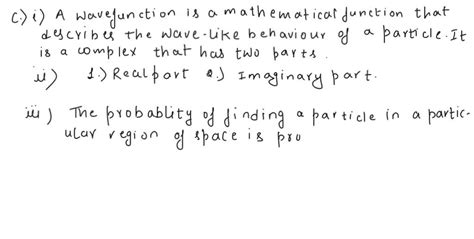 C) i) A wavefunction is a mathematical function that
describes the wave-like behaviour of a particle. It
is a complex that has two parts.
ii) 1.) Real part 2.) Imaginary part.
iii) The probablity of finding a particle in a partic-
ular region of space is pro